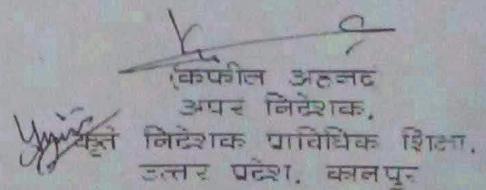 (कफील अहमद
अपर निदेशक,
कृते निदेशक प्राविधिक शिक्षा,
उत्तर प्रदेश, कानपुर